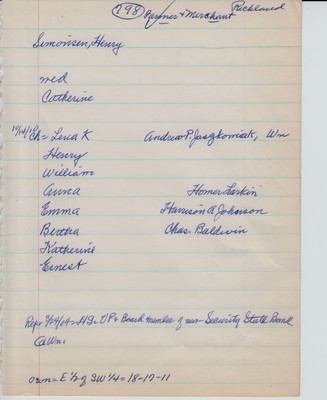 798 Farmer & Merchant Richland
Simonsen, Henry
wed
Catherine
Ch = Lena K Andrew P. Jaszkowiak, Wm
Henry
William
Anna Homer Larkin
Emma Harrison A Johnson
Bertha Chas. Baldwin
Katherine
Ernest
Repr 9/24/09 = HS = VP & Board member of new Security State Bank
@ Wm.
own = E ½ of SW ¼ = 18-17-11